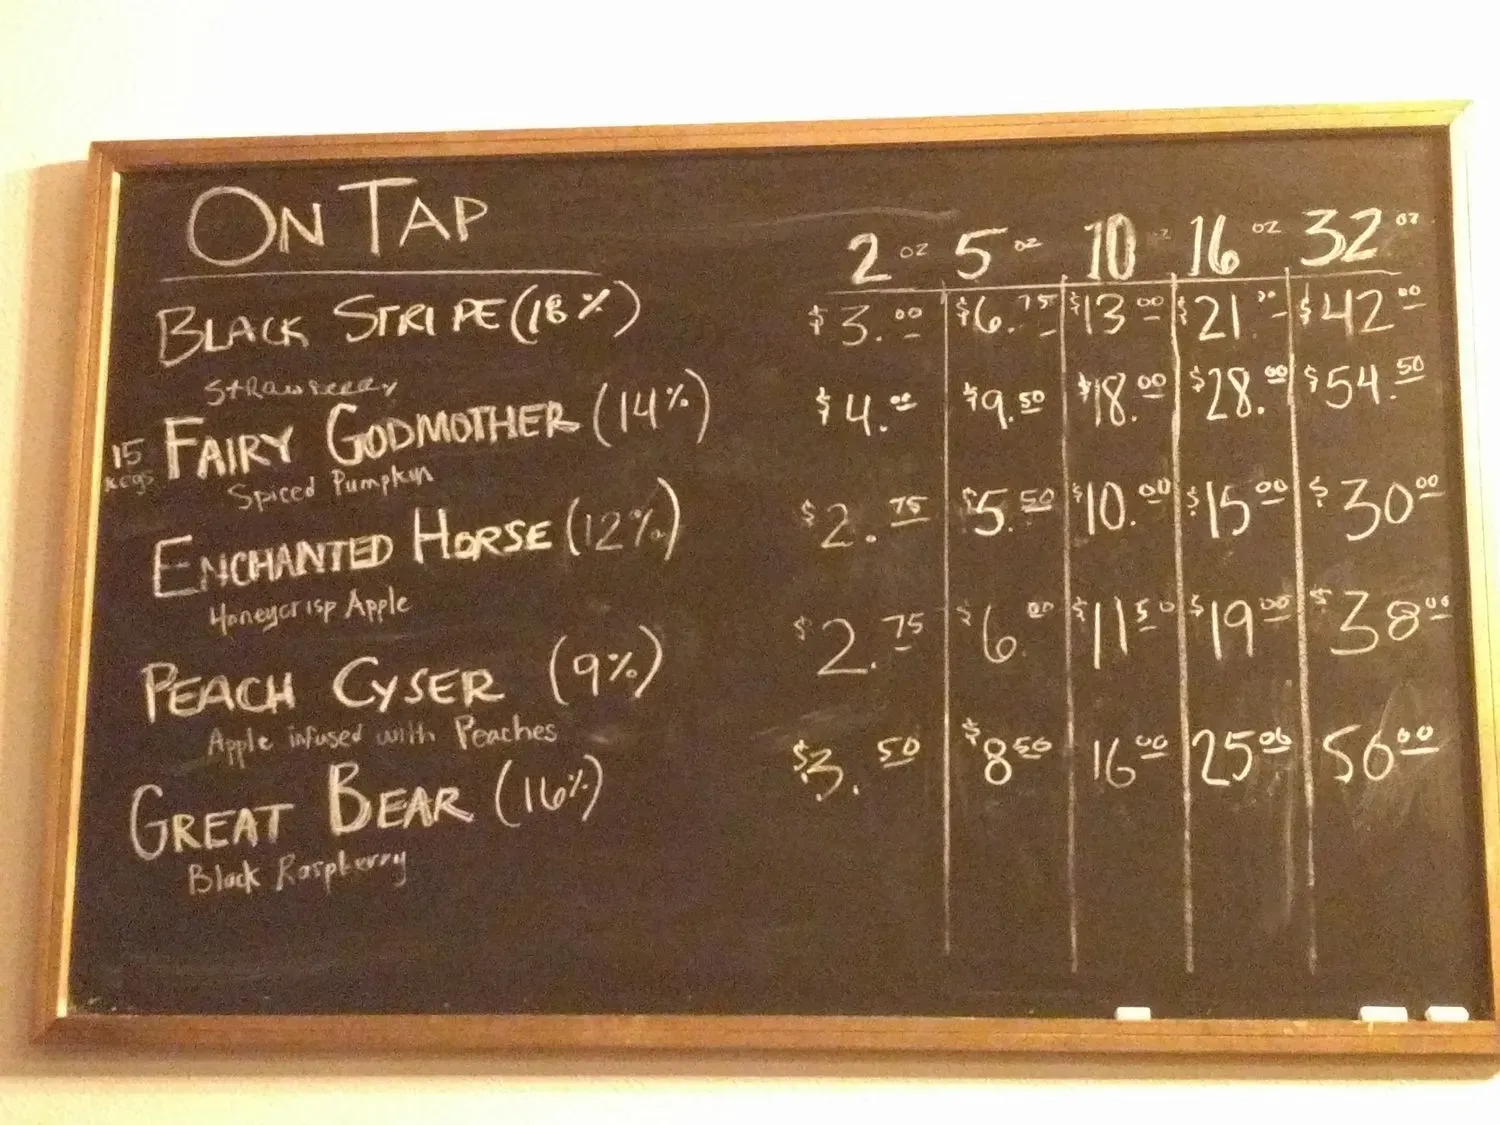 ON TAP
2 oz 5 oz 10 oz 16 oz 32 oz
BLACK STRIPE (18%) $3.00 $6.75 $13.00 $21.00 $42.00
Strawberry
15 kegs FAIRY GODMOTHER (14%) $4.00 $9.50 $18.00 $28.00 $54.50
Spiced Pumpkin
ENCHANTED HORSE (12%) $2.75 $5.50 $10.00 $15.00 $30.00
Honeycrisp Apple
PEACH CYSER (9%) $2.75 $6.00 $11.50 $19.00 $38.00
Apple infused with Peaches
GREAT BEAR (16%) $3.50 $8.50 16.00 25.00 50.00
Black Raspberry